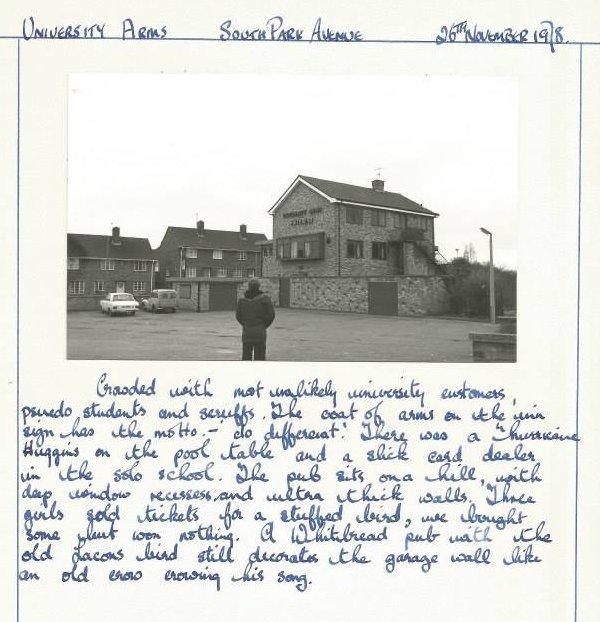 University Arms South Park Avenue 26TH November 1978.
UNIVERSITY ARMS
Crowded with most unlikely university customers,
psuedo students and scruffs. The coat of arms on the inn
sign has the motto - 'do different.' There was a "hurricane
Huggins on the pool table and a slick card dealer
in the solo school. The pub sits on a hill, with
deep window recesses and ultra thick walls. Three
girls sold tickets for a stuffed bird, we bought
some but won nothing. A Whitbread pub with the
old Lacons bird still decorates the garage wall like
an old crow crowing his song.